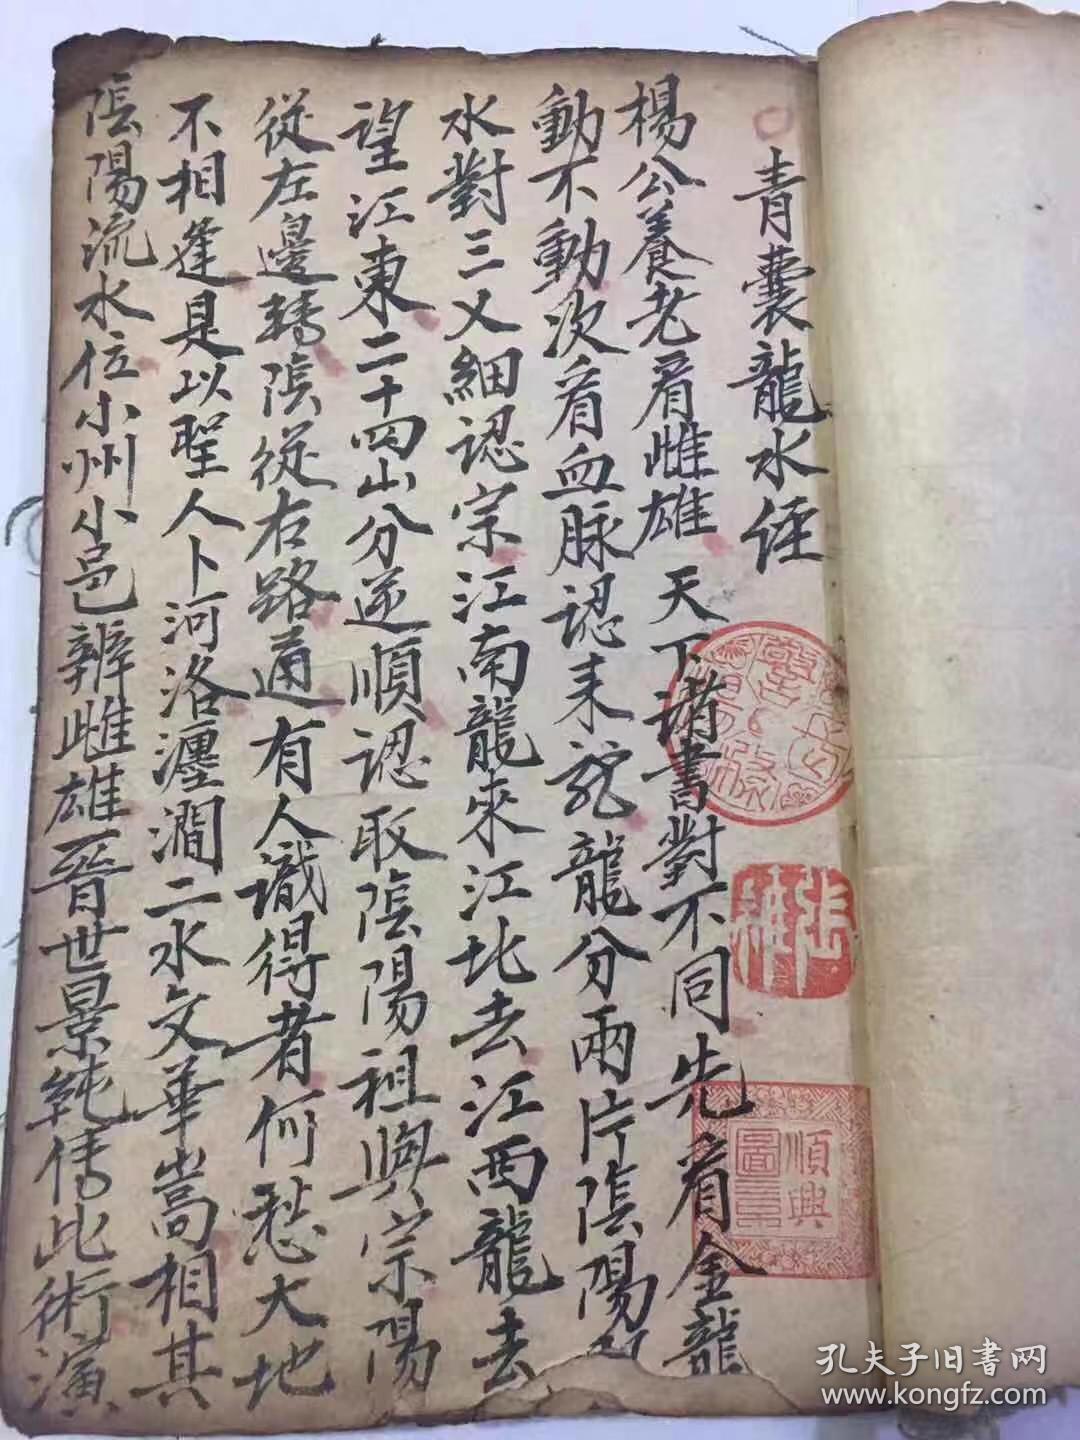 青囊龍水經
楊公養老看雌雄 天下諸書對不同先看金龍
動不動次看血脉認來龍龍分兩片陰陽
水對三叉細認宗江南龍來江北去江西龍去
望江東二十四山分逆順認取陰陽祖與宗陽
從左邊轉陰從右路通有人識得者何愁大地
不相逢是以聖人卜河洛瀍澗二水文華嵩相其
陰陽流水位小州小邑辨雌雄晉世景純傳此術演
順興
圖
張
孔夫子旧書网
www.kongfz.com